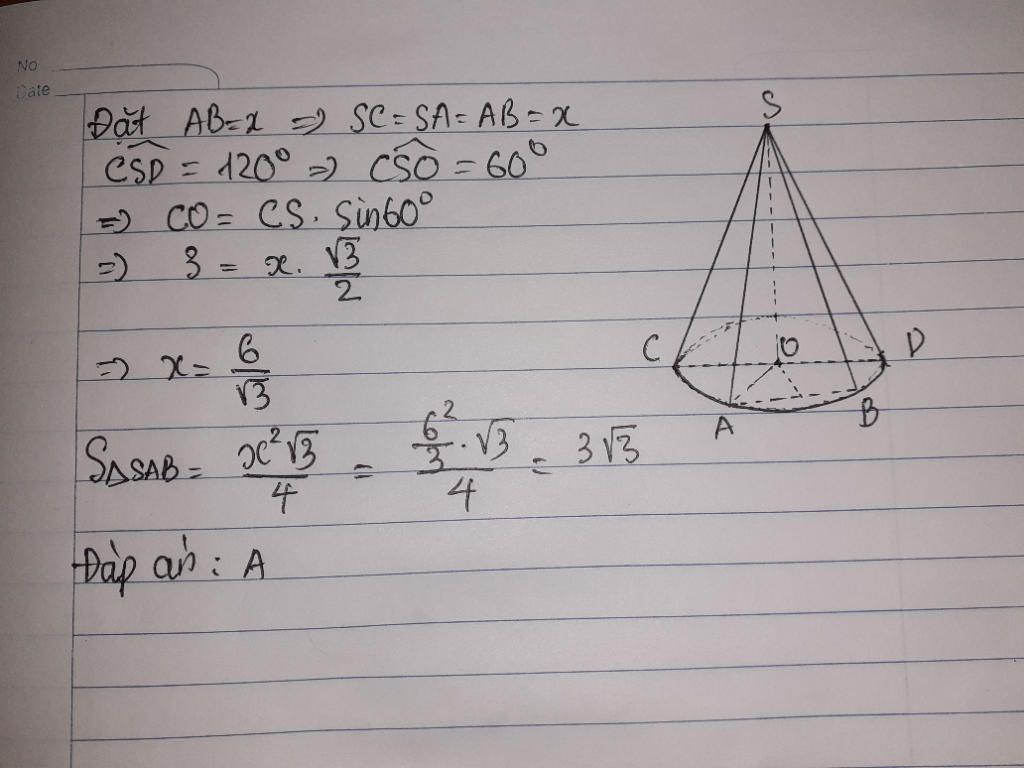 No
Date
Đặt AB=x => SC=SA=AB=x
\widehat{CSD} = 120° => \widehat{CSO} = 60°
=> CO = CS. Sin60°
=> 3 = x. √3/2
=> x = 6/√3
S△SAB = x²√3/4 = (6²/3 . √3)/4 = 3√3
Đáp án: A
S
C
O
D
A
B